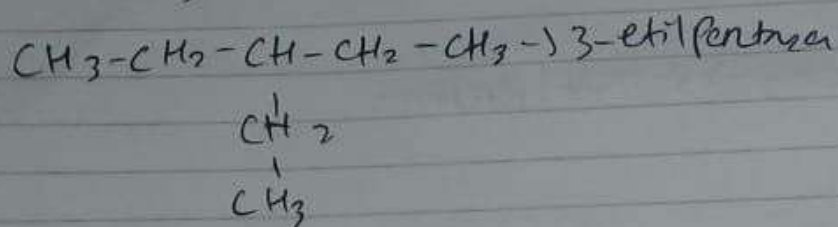 CH3-CH2-CH-CH2-CH3 -) 3-etilpentana
CH2
CH3